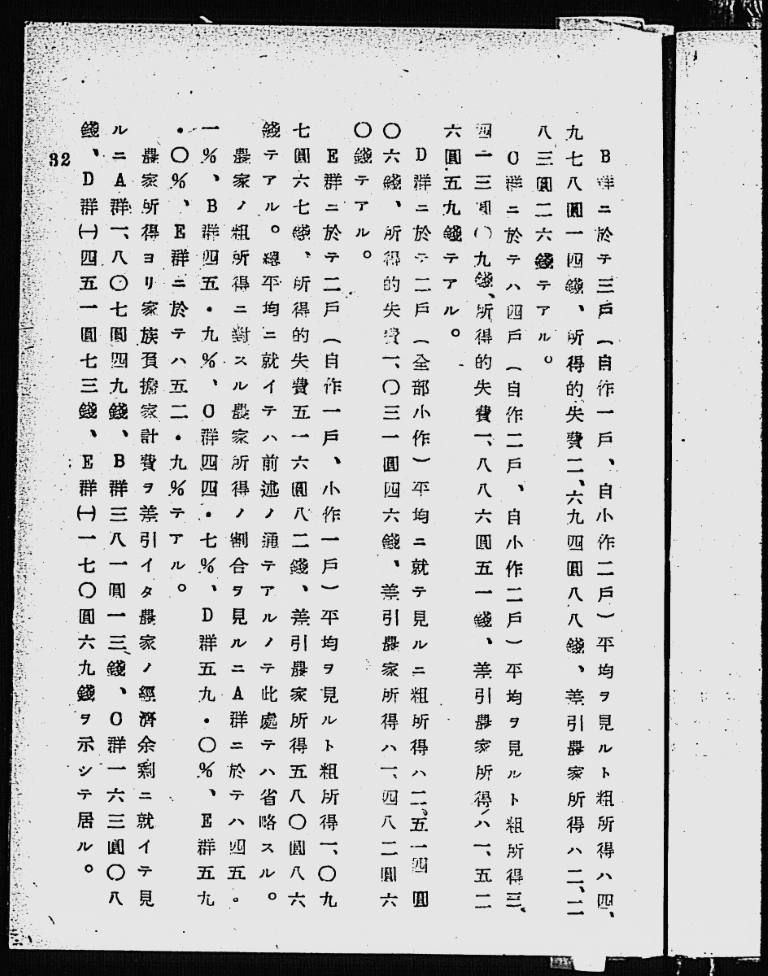 B群ニ於テ三戸（自作一戸、自小作二戸）平均ヲ見ルト粗所得ハ四、
九七八圓一四錢、所得的失費二、六九四圓八八錢、差引農家所得ハ二、二
八三圓二六錢テアル。
C群ニ於テハ四戸（自作二戸、自小作二戸）平均ヲ見ルト粗所得三、
四一三圓〇九錢、所得的失費一、八八六圓五一錢、差引農家所得ハ一、五二
六圓五九錢テアル。
D群ニ於テ二戸（全部小作）平均ニ就テ見ルニ粗所得ハ二、五一四圓
〇六錢、所得的失費一、〇三一圓四六錢、差引農家所得ハ一、四八二圓六
〇錢テアル。
E群ニ於テ二戸（自作一戸、小作一戸）平均ヲ見ルト粗所得一、〇九
七圓六七錢、所得的失費五一六圓八二錢、差引農家所得五八〇圓八六
錢テアル。總平均ニ就イテハ前述ノ通テアルノテ此處テハ省略スル。
農家ノ粗所得ニ對スル農家所得ノ割合ヲ見ルニA群ニ於テハ四五。
一％、B群四五・九％、C群四四・七％、D群五九・〇％、E群五九
・〇％、E群ニ於テハ五二・九％テアル。
農家所得ヨリ家族負擔家計費ヲ差引イタ農家ノ經濟余剩ニ就イテ見
ルニA群一、八〇七圓四九錢、B群三八一圓一三錢、C群一六三圓〇八
錢、D群㈠四五一圓七三錢、E群㈠一七〇圓六九錢ヲ示シテ居ル。
32